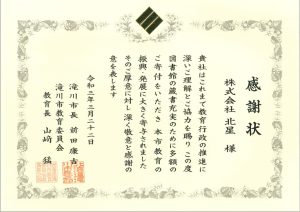 感謝状
株式会社 北星 様
貴社はこれまで教育行政の推進に
深いご理解とご協力を賜り この度
図書館の蔵書充実のために多額の
ご寄付をいただき 本市教育の
振興 発展に大きく寄与されました
そのご厚意に対し 深く敬意と感謝の
意を表します
令和三年三月二十二日
滝川市長 前田康吉
滝川市教育委員会
教育長 山﨑 猛